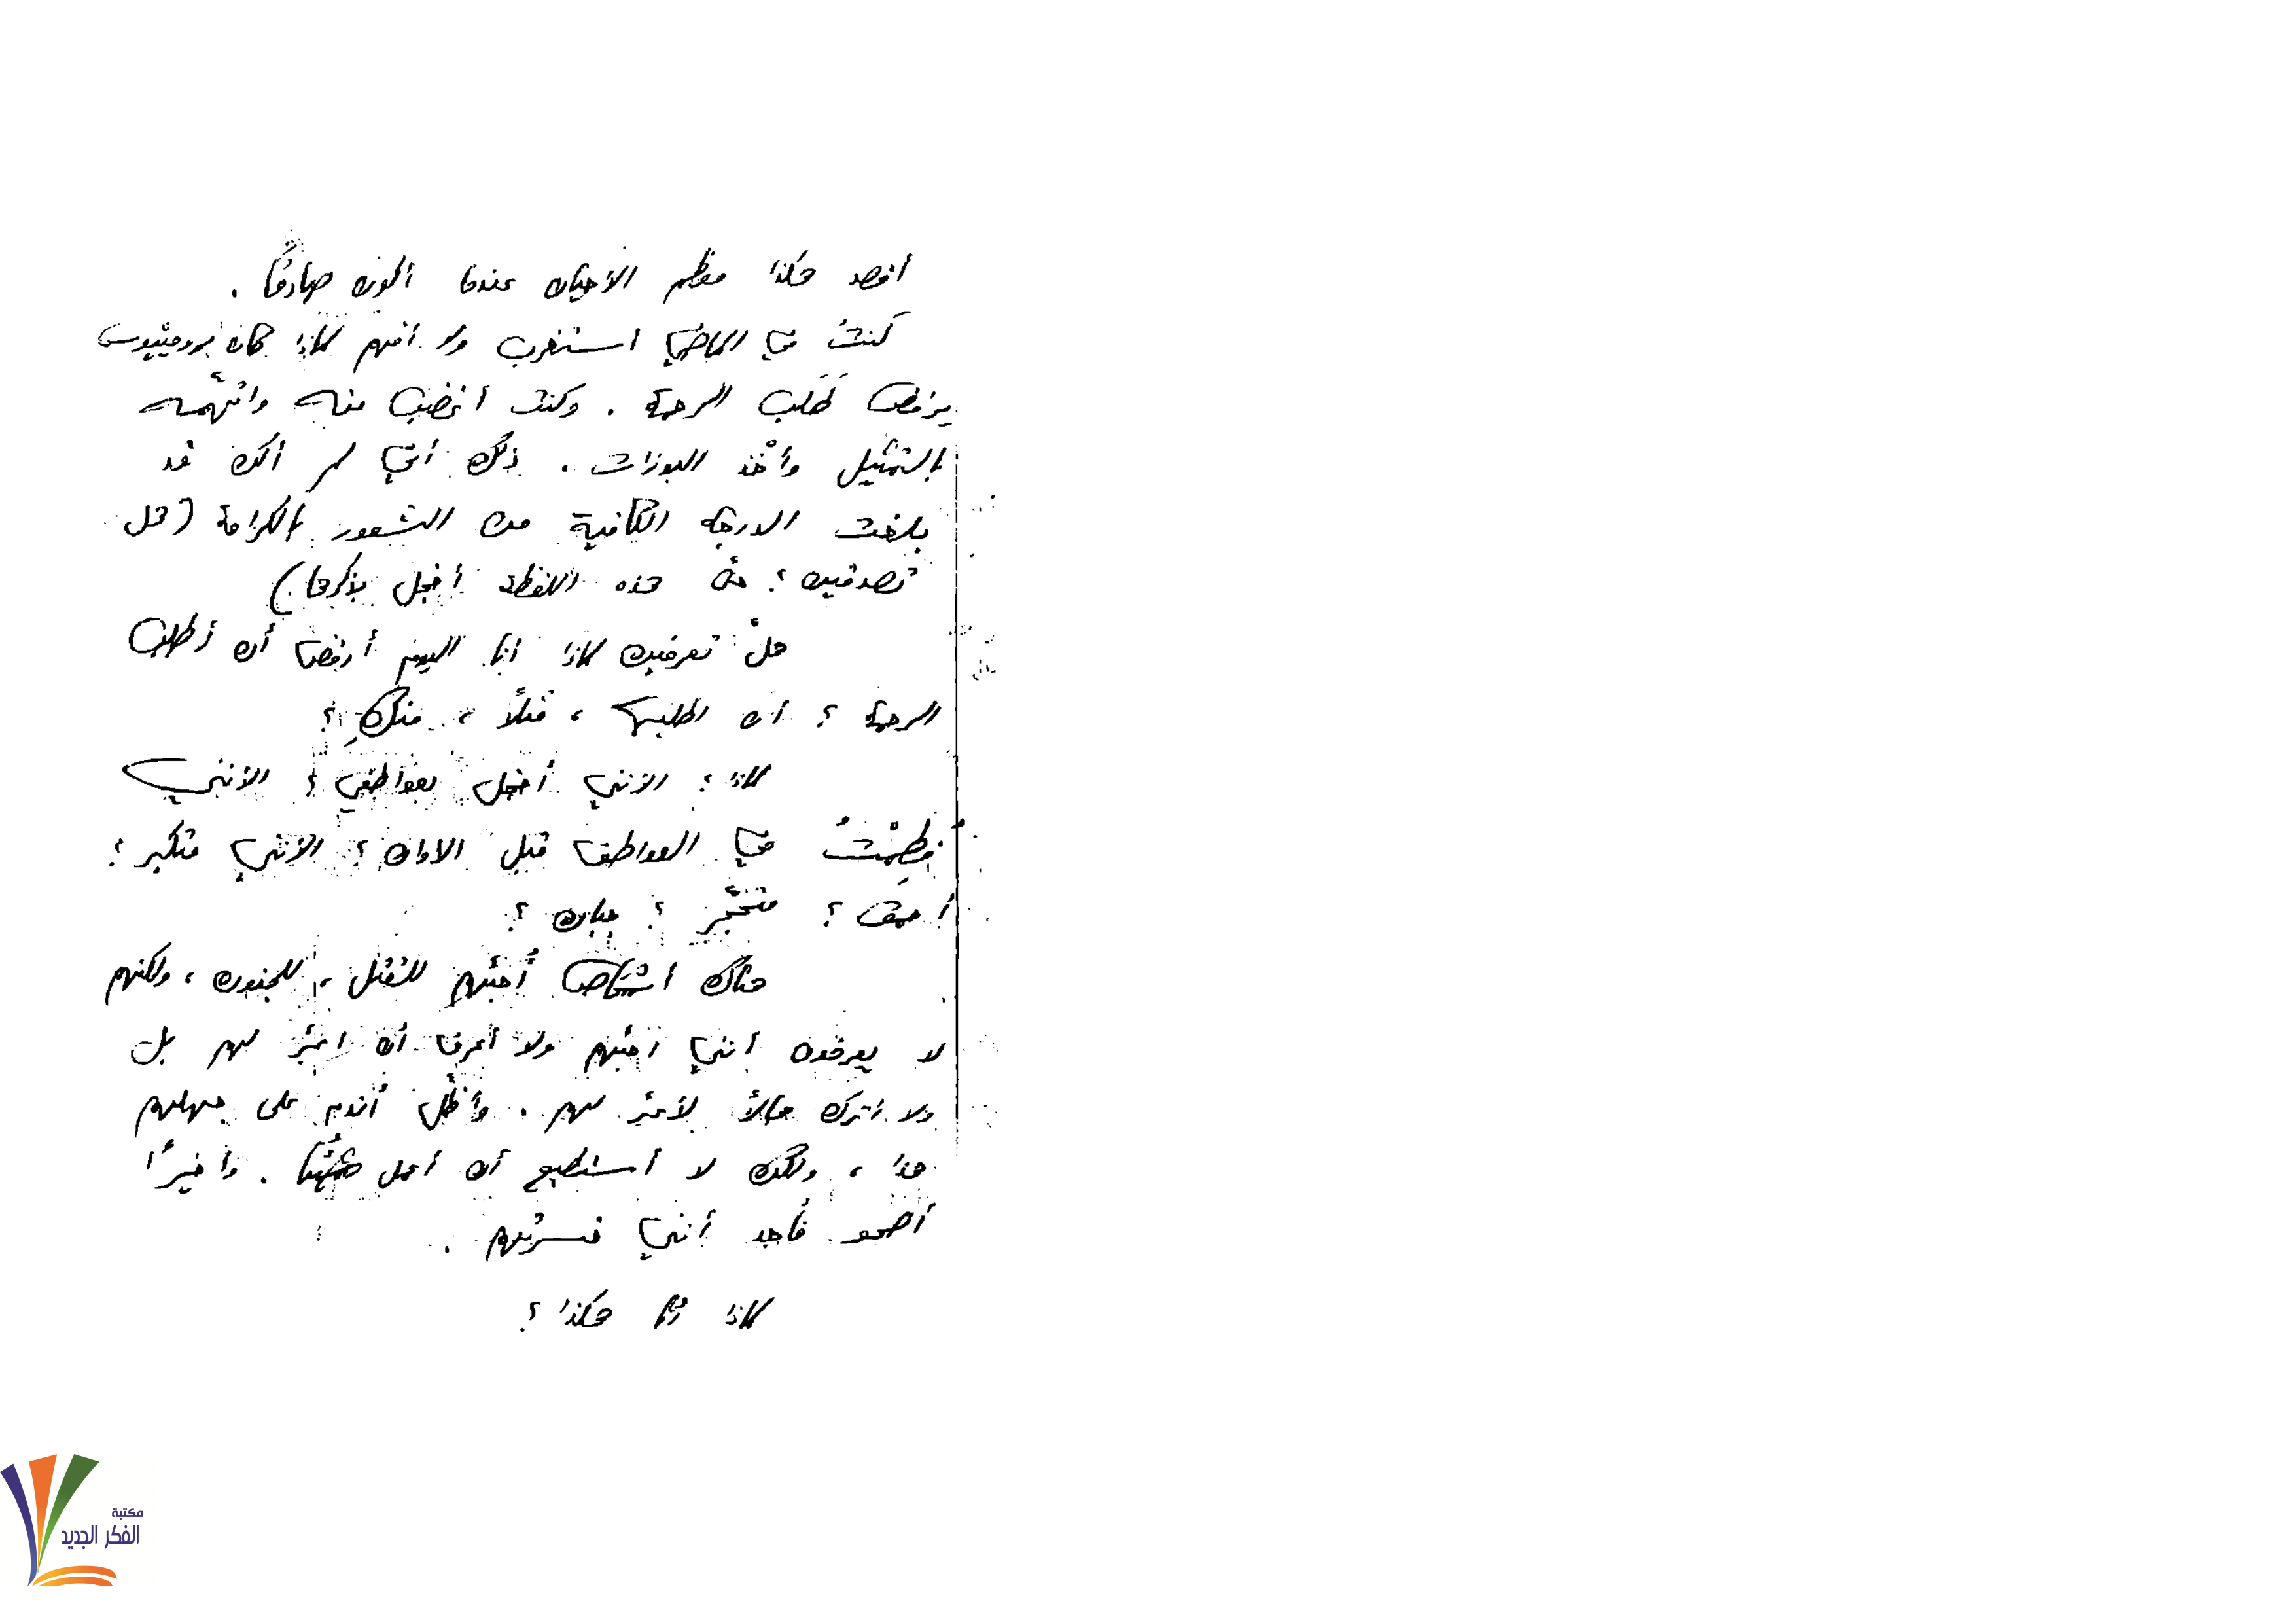 أقصد هكذا معظم الأحيان عندما أكون صادقًا .
كنتُ في الماضي استغرب ولا أفهم لماذا كان بروميثيوس
يرفض طَلَب الرحمة . وكنت أغضب منه واتّهمه
بالتمثيل وأخْذ البوزات . ذلك أني لم أكن قد
بلغت الدرجة الكافية من الشعور بالكرامة (هل
تصدقين ؟ حتى هذه اللفظة أخجل بذكرها)
هلْ تعرفين لماذا أنا اليوم أرفض أن أطلب
الرحمة ؟ أن اطلبها ، مثلاً ، منكِ ؟
لماذا ؟ لأنني أخجل بعواطفي ؟ لأنني
فُطِمْتُ في العواطف قبل الاوان ؟ لأنني متكبر ؟
أحمق ؟ متحجّر ؟ جبان ؟
هناك أشخاص أُحبّهم للقتل ، للجنون ، ولكنهم
لا يعرفون أنني احبّهم ولا أعرف أن اعبّر لهم بل
ولا اترك مجالاً لأعبّر لهم . وأظّل أندم على جهلهم
هذا ، ولكن لا أستطيع أن أعمل شيئًا . وأخيرًا
أصحو فأجد أنني خسرتهم .
لماذا أنا هكذا ؟
مكتبة
الفكر الجديد